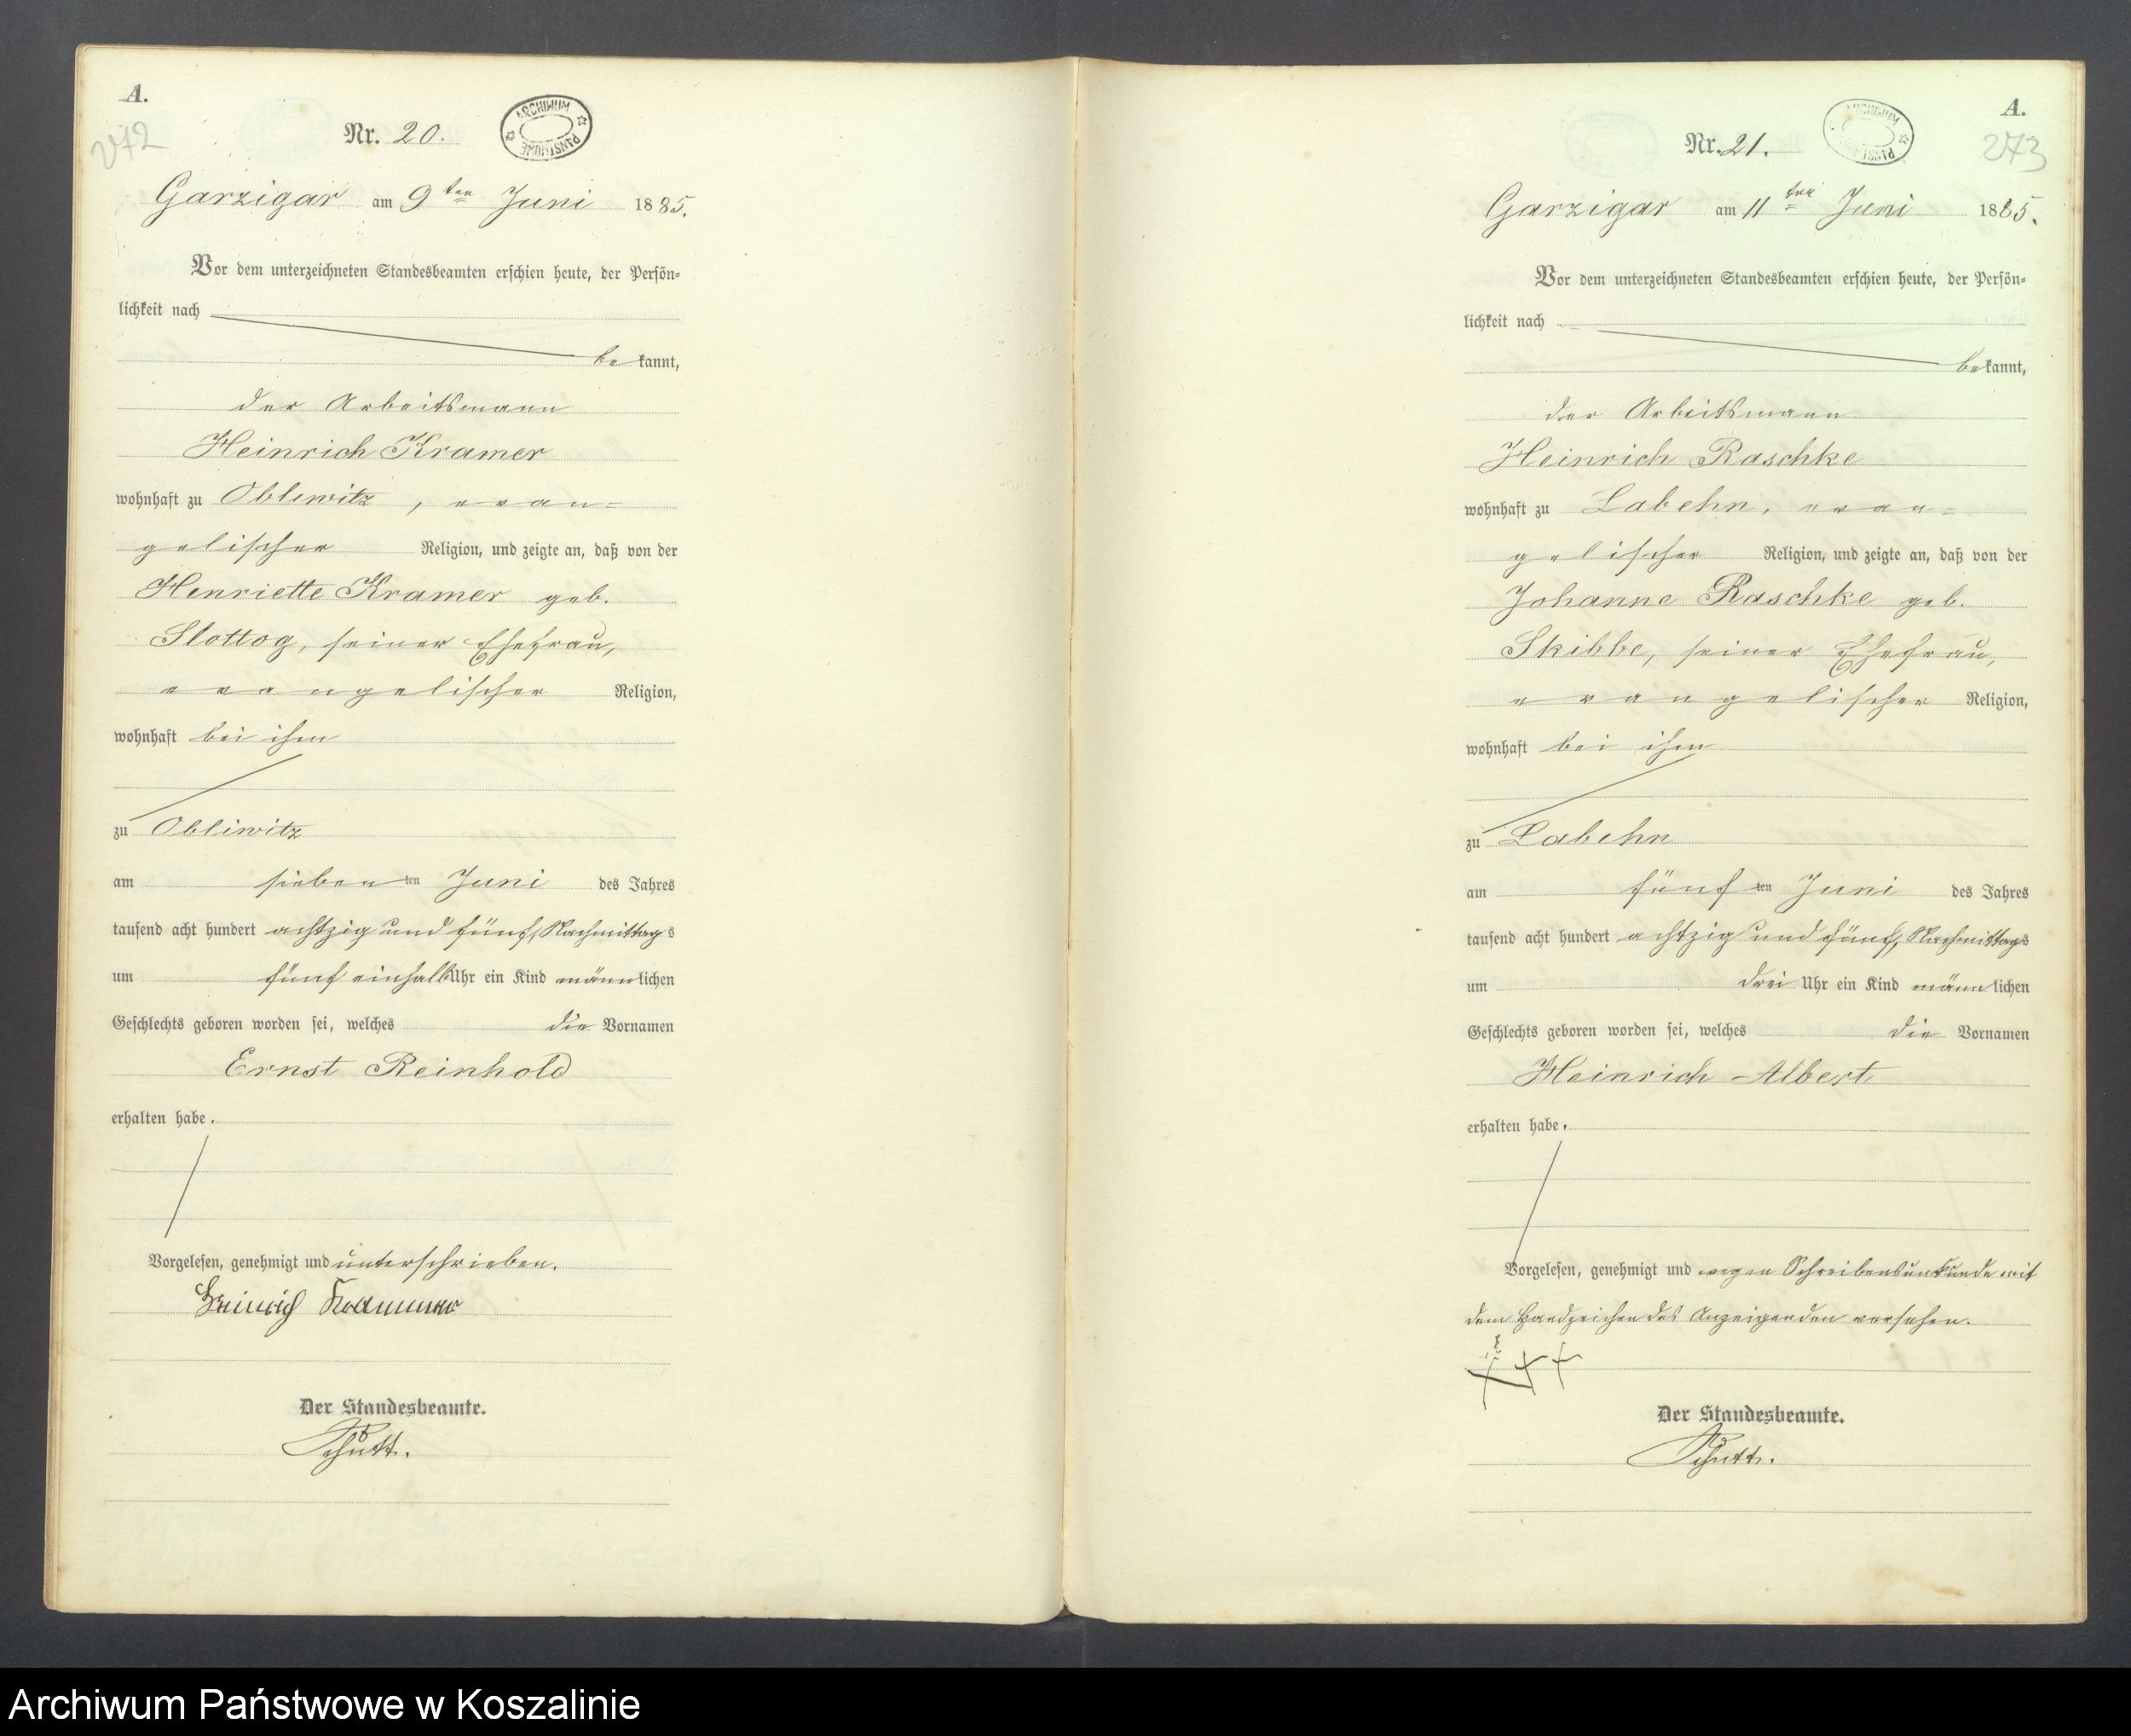 A.
272
Nr. 20.
ARCHIWUM PAŃSTWOWE
Garzigar am 9ten Juni 1885.
Vor dem unterzeichneten Standesbeamten erschien heute, der Persön-
lichkeit nach
be kannt,
der Arbeitsmann
Heinrich Kramer
wohnhaft zu Obliwitz, evan-
gelischer Religion, und zeigte an, daß von der
Henriette Kramer geb.
Slottog, seiner Ehefrau,
evangelischer Religion,
wohnhaft bei ihm
zu Obliwitz
am sieben ten Juni des Jahres
tausend acht hundert achtzig und fünf, Nachmittags
um fünf einhalb Uhr ein Kind männlichen
Geschlechts geboren worden sei, welches die Vornamen
Ernst Reinhold
erhalten habe.
Vorgelesen, genehmigt und unterschrieben.
Heinrich Krammer
Der Standesbeamte.
Schütt.
A.
273
Nr. 21.
ARCHIWUM PAŃSTWOWE
Garzigar am 11ten Juni 1885.
Vor dem unterzeichneten Standesbeamten erschien heute, der Persön-
lichkeit nach
bekannt,
der Arbeitsmann
Heinrich Raschke
wohnhaft zu Labehn, evan-
gelischer Religion, und zeigte an, daß von der
Johanne Raschke geb.
Skibbe, seiner Ehefrau,
evangelischer Religion,
wohnhaft bei ihm
zu Labehn
am fünf ten Juni des Jahres
tausend acht hundert achtzig und fünf, Nachmittags
um drei Uhr ein Kind männlichen
Geschlechts geboren worden sei, welches die Vornamen
Heinrich Albert
erhalten habe.
Vorgelesen, genehmigt und wegen Schreibensunkunde mit
dem Handzeichen des Anzeigenden versehen.
+++
Der Standesbeamte.
Schütt.
Archiwum Państwowe w Koszalinie